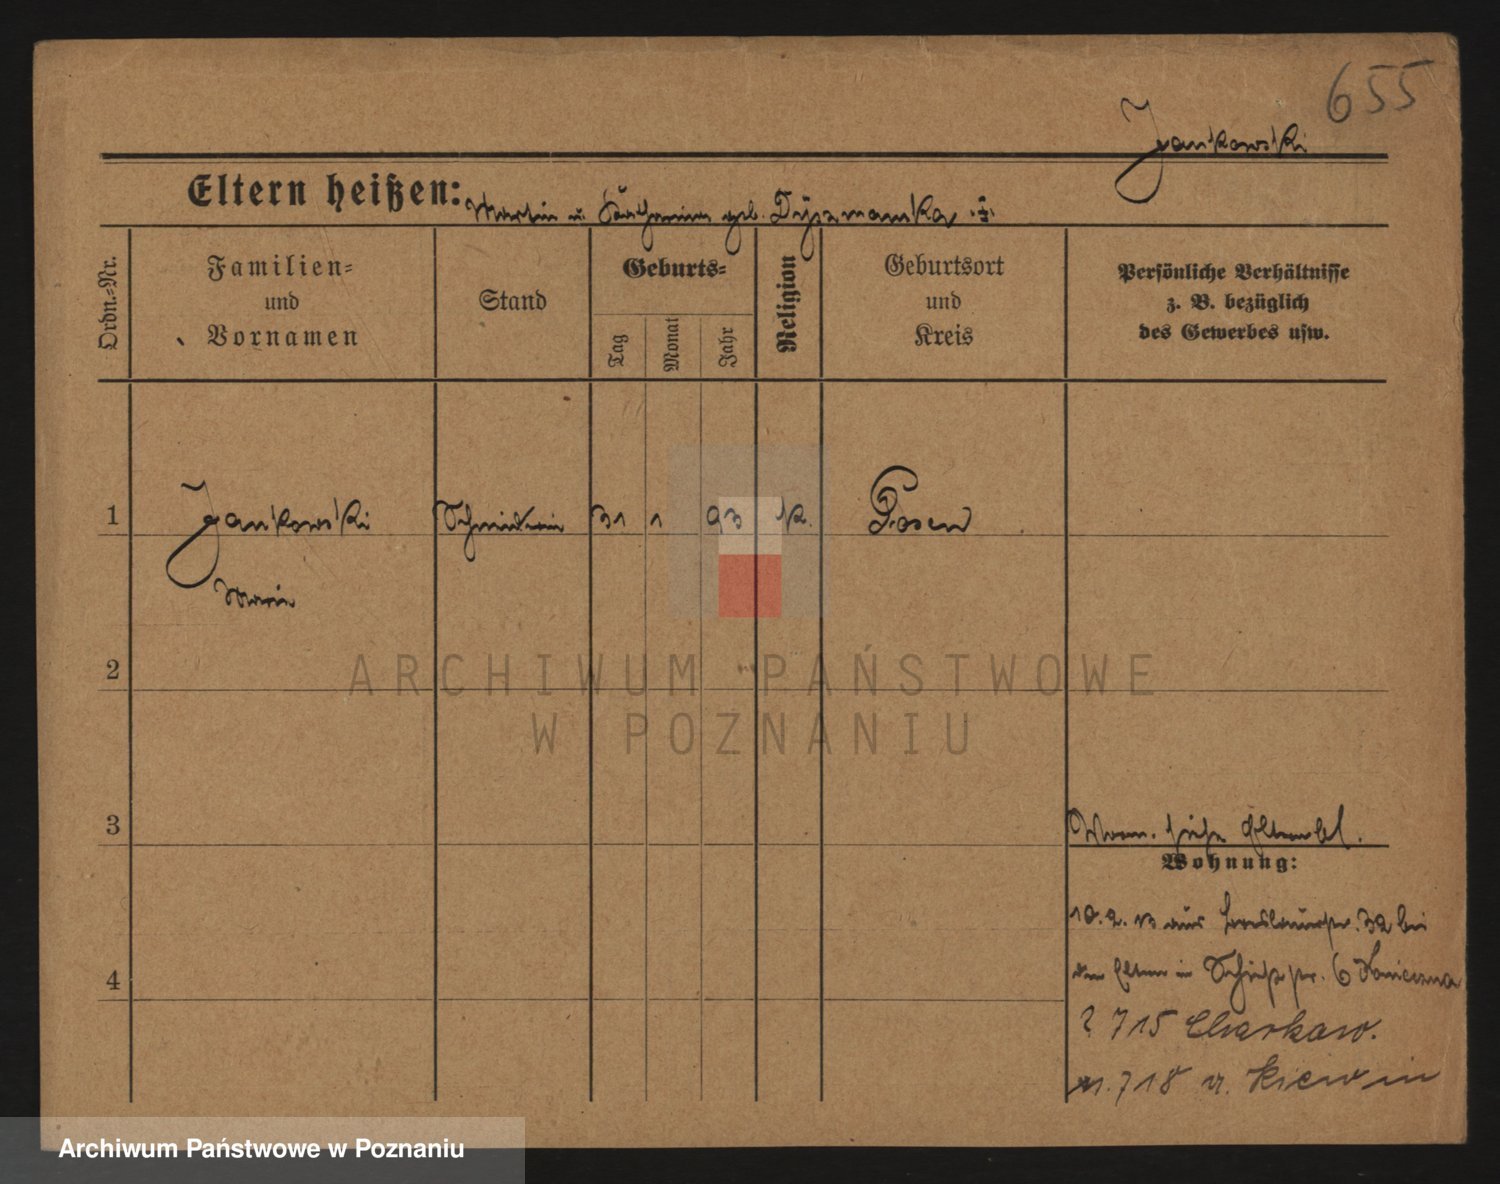 655
Jankowski
Eltern heißen: Martin u. Katharina geb. Dyzmanska
Ordn.=Nr.
Familien=
und
Vornamen
Stand
Geburts=
Tag
Monat
Jahr
Religion
Geburtsort
und
Kreis
Persönliche Verhältnisse
z. B. bezüglich
des Gewerbes usw.
1
Jankowski
Schneiderin
31
1
93
k.
Posen
Marie
2
ARCHIWUM PAŃSTWOWE
W POZNANIU
3
siehe Elternbl.
Wohnung:
10. 2. 13 aus Breslauerstr. 32 bei
den Eltern in Schießstr. 6
4
715 Charkow.
718 Kiew in
Archiwum Państwowe w Poznaniu